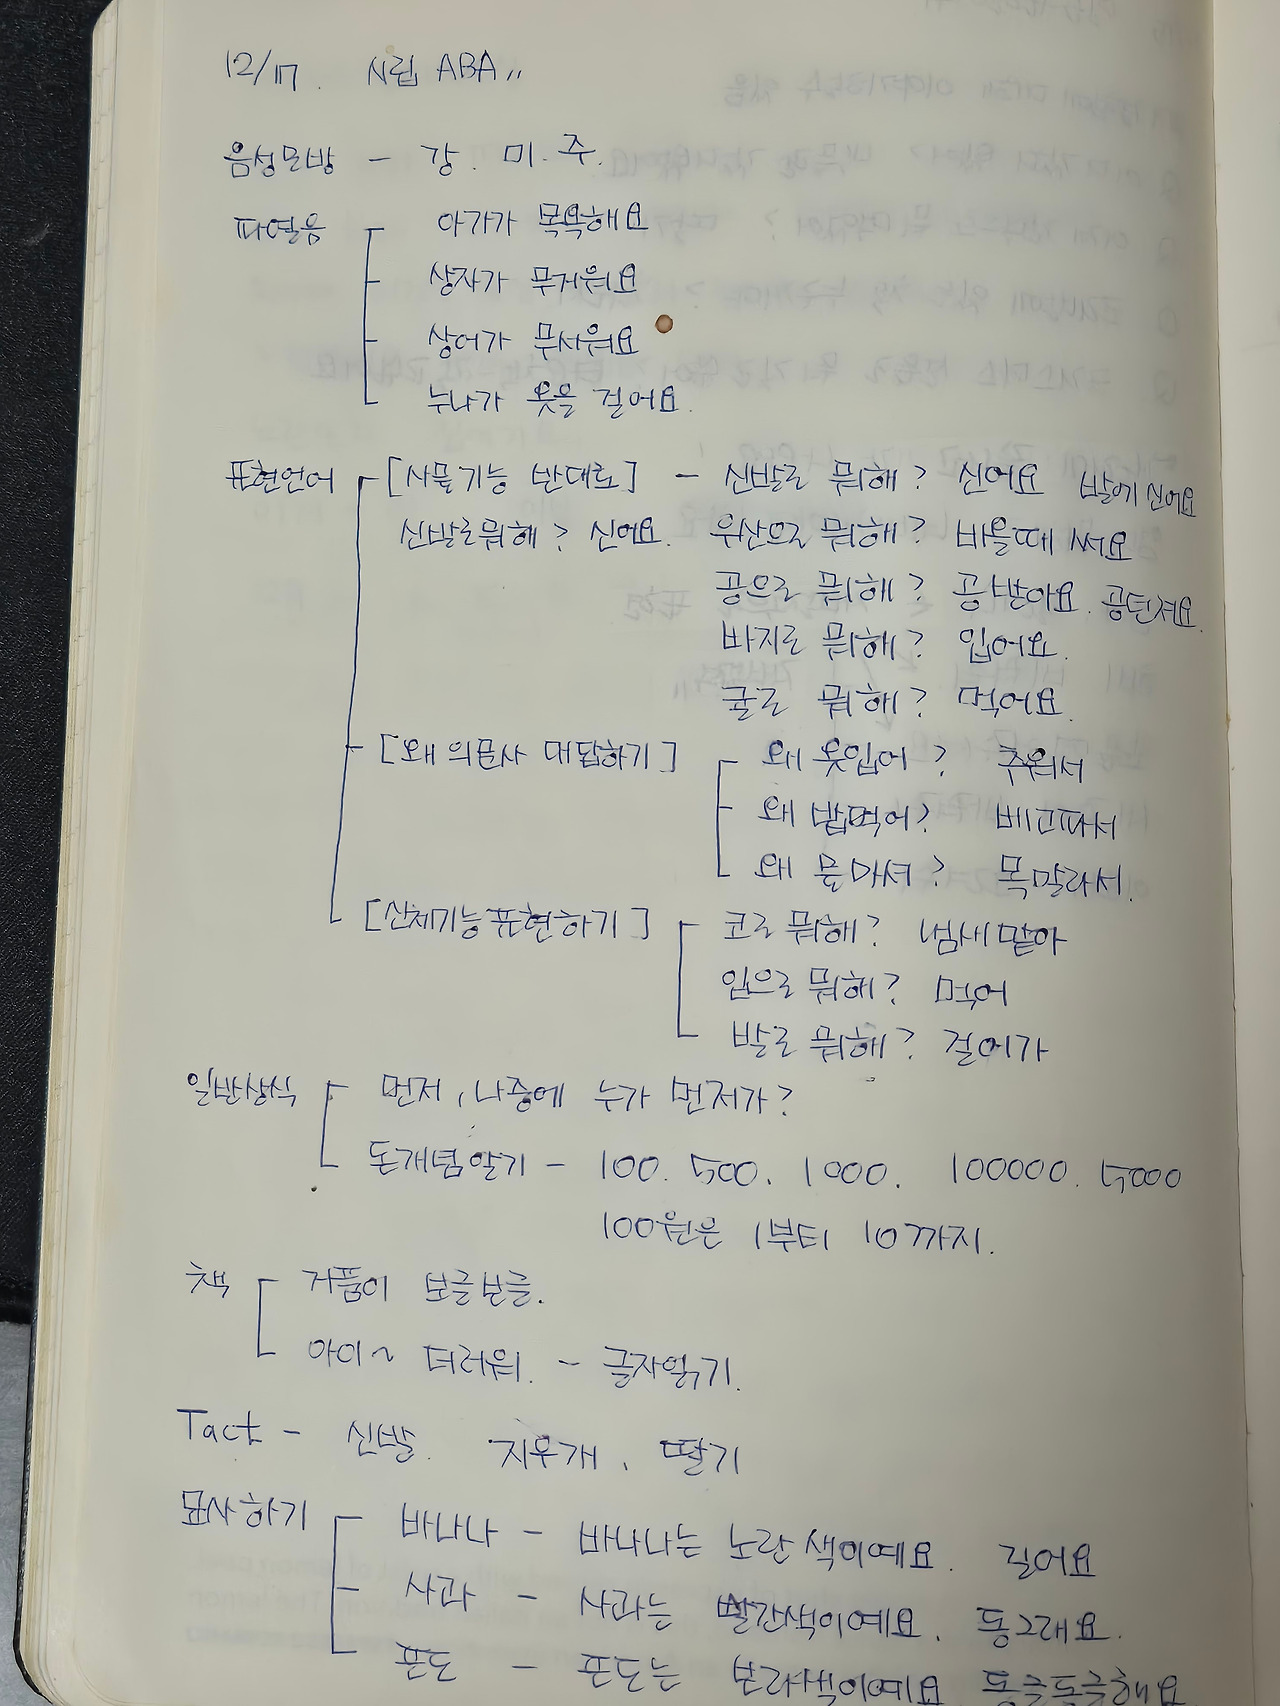 12/17. 시립 ABA,,
음성모방 - 강. 미. 주.
파열음 아가가 목욕해요
상자가 무거워요
상어가 무서워요
누나가 옷을 걸어요.
표현언어 [사물기능 반대로] - 신발로 뭐해? 신어요 발에 신어요
신발로뭐해? 신어요. 우산으로 뭐해? 비올때 써요
공으로 뭐해? 공받아요. 공던져요.
바지로 뭐해? 입어요.
귤로 뭐해? 먹어요.
[왜 의문사 대답하기] 왜 옷입어? 추워서
왜 밥먹어? 배고파서
왜 물마셔? 목말라서.
[신체기능표현하기] 코로 뭐해? 냄새맡아
입으로 뭐해? 먹어
발로 뭐해? 걸어가
일반상식 먼저, 나중에 누가 먼저가?
돈개념알기 - 100. 500. 1000. 100000. 5000
100원은 1부터 10까지.
책 거품이 보글보글.
아이~ 더러워. - 글자읽기.
Tact - 신발. 지우개, 딸기
묘사하기 바나나 - 바나나는 노란색이예요. 길어요
사과 - 사과는 빨간색이예요. 동그래요.
포도 - 포도는 보라색이예요 동글동글해요